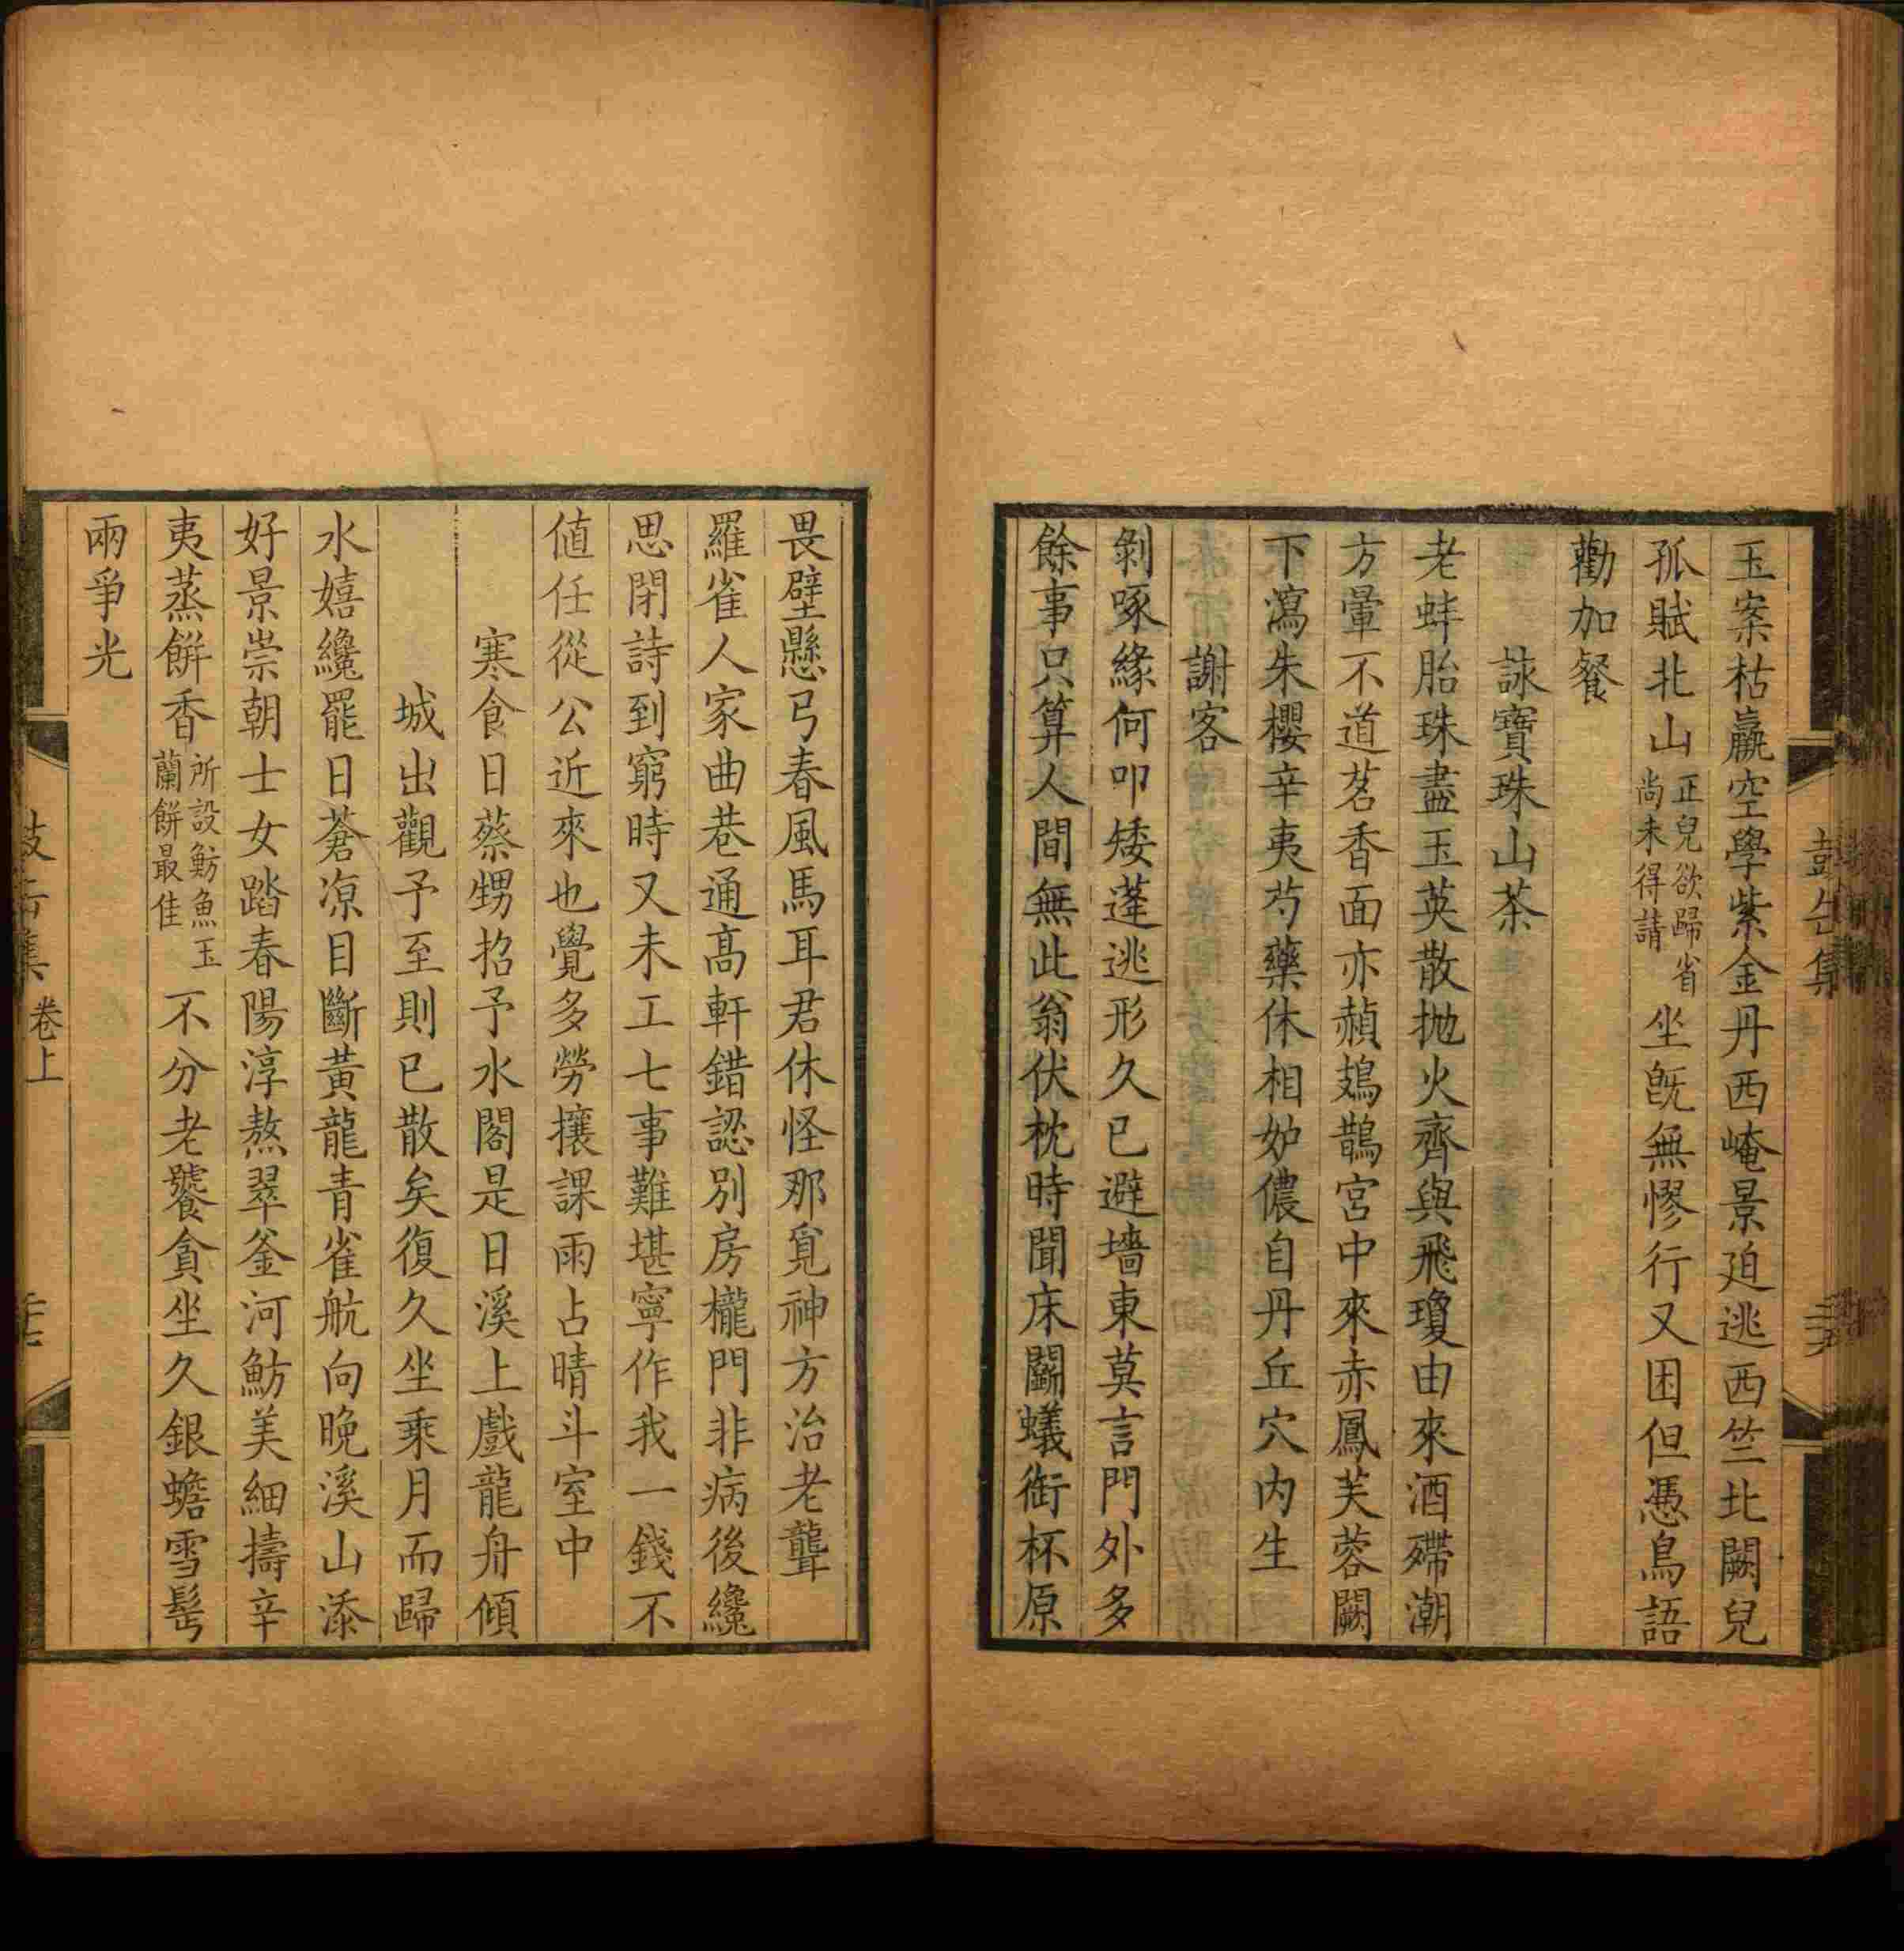 玉案枯羸空學紫金丹西崦景廹逃西竺北闕兒
孤賦北山正兒欲歸省尚未得請坐旣無憀行又困但憑鳥語
勸加餐
詠寶珠山茶
老蚌胎珠盡玉英散拋火齊與飛瓊由來酒殢潮
方暈不道茗香面亦赬鳷鵲宮中來赤鳳芙蓉闕
下瀉朱櫻辛夷芍藥休相妒儂自丹丘穴内生
謝客
剝啄緣何叩矮蓬逃形久已避墻東莫言門外多
餘事只算人間無此翁伏枕時聞床鬭蟻銜杯原
畏壁懸弓春風馬耳君休怪那覓神方治老聾
羅雀人家曲巷通高軒錯認別房櫳門非病後纔
思閉詩到窮時又未工七事難堪寧作我一錢不
値任從公近來也覺多勞攘課雨占晴斗室中
寒食日蔡甥招予水閣是日溪上戲龍舟傾
城出觀予至則已散矣復久坐乘月而歸
水嬉纔罷日蒼凉目斷黃龍青雀航向晚溪山添
好景崇朝士女踏春陽淳熬翠釜河魴美細擣辛
夷蒸餅香所設魴魚玉蘭餅最佳不分老饕貪坐久銀蟾雪髩
兩爭光
卷上